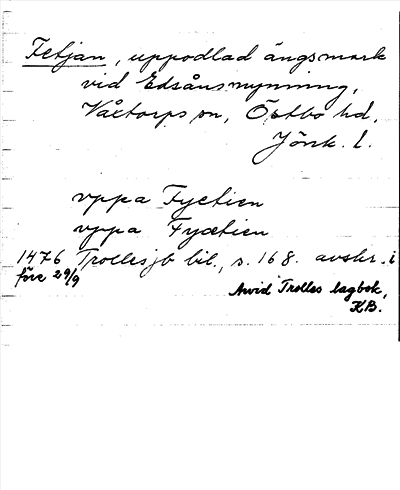 Fetjan, uppodlad ängsmark
vid Edsånsmynning,
Våxtorps sn, Östbo hd,
Jönk. l.
vppa Fyetien
vppa Fyætien
1476 Trollesjb bil., s. 168. avskr. i
före 29/9
Arvid Trolles lagbok,
KB.